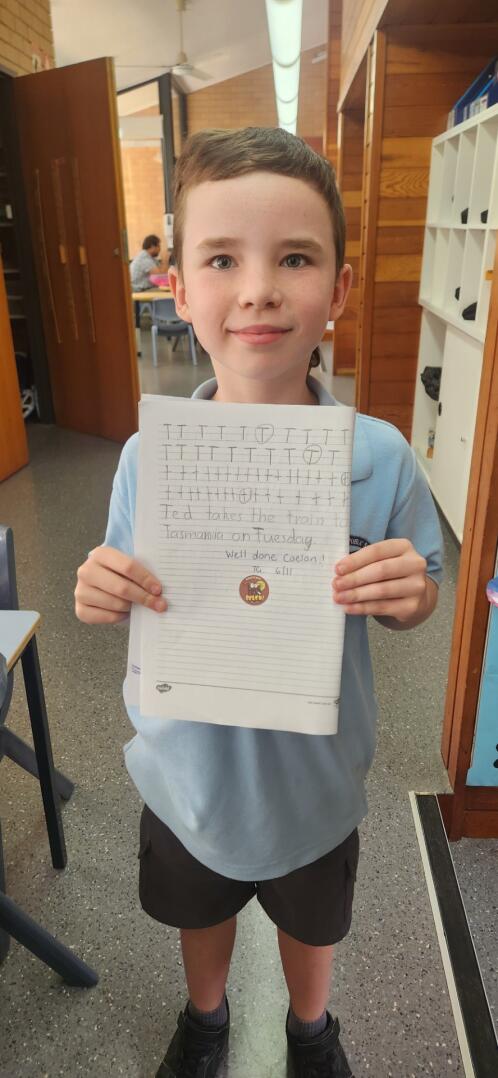 T T T T T T T T T T
T T T T T T T T T T T
t t t t t t t t t t t t t t t t
t t t t t t t t t t t t t t
Ted takes the train to
Tasmania on tuesday.
Well done Caelan!
TG 6/11